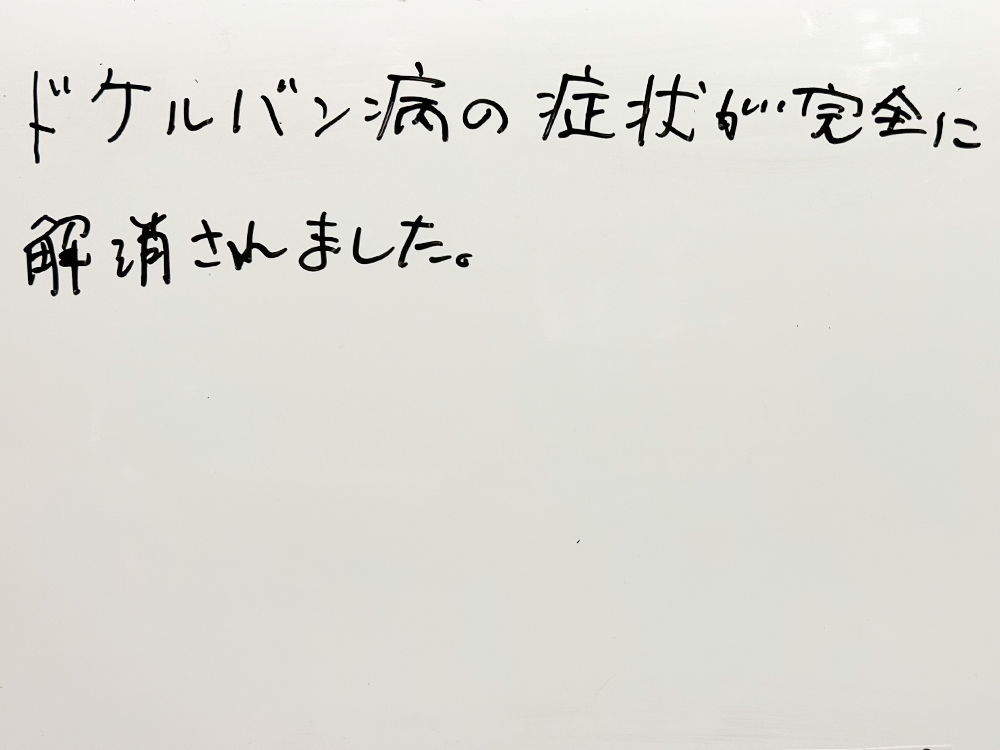 ドケルバン病の症状が完全に
解消されました。